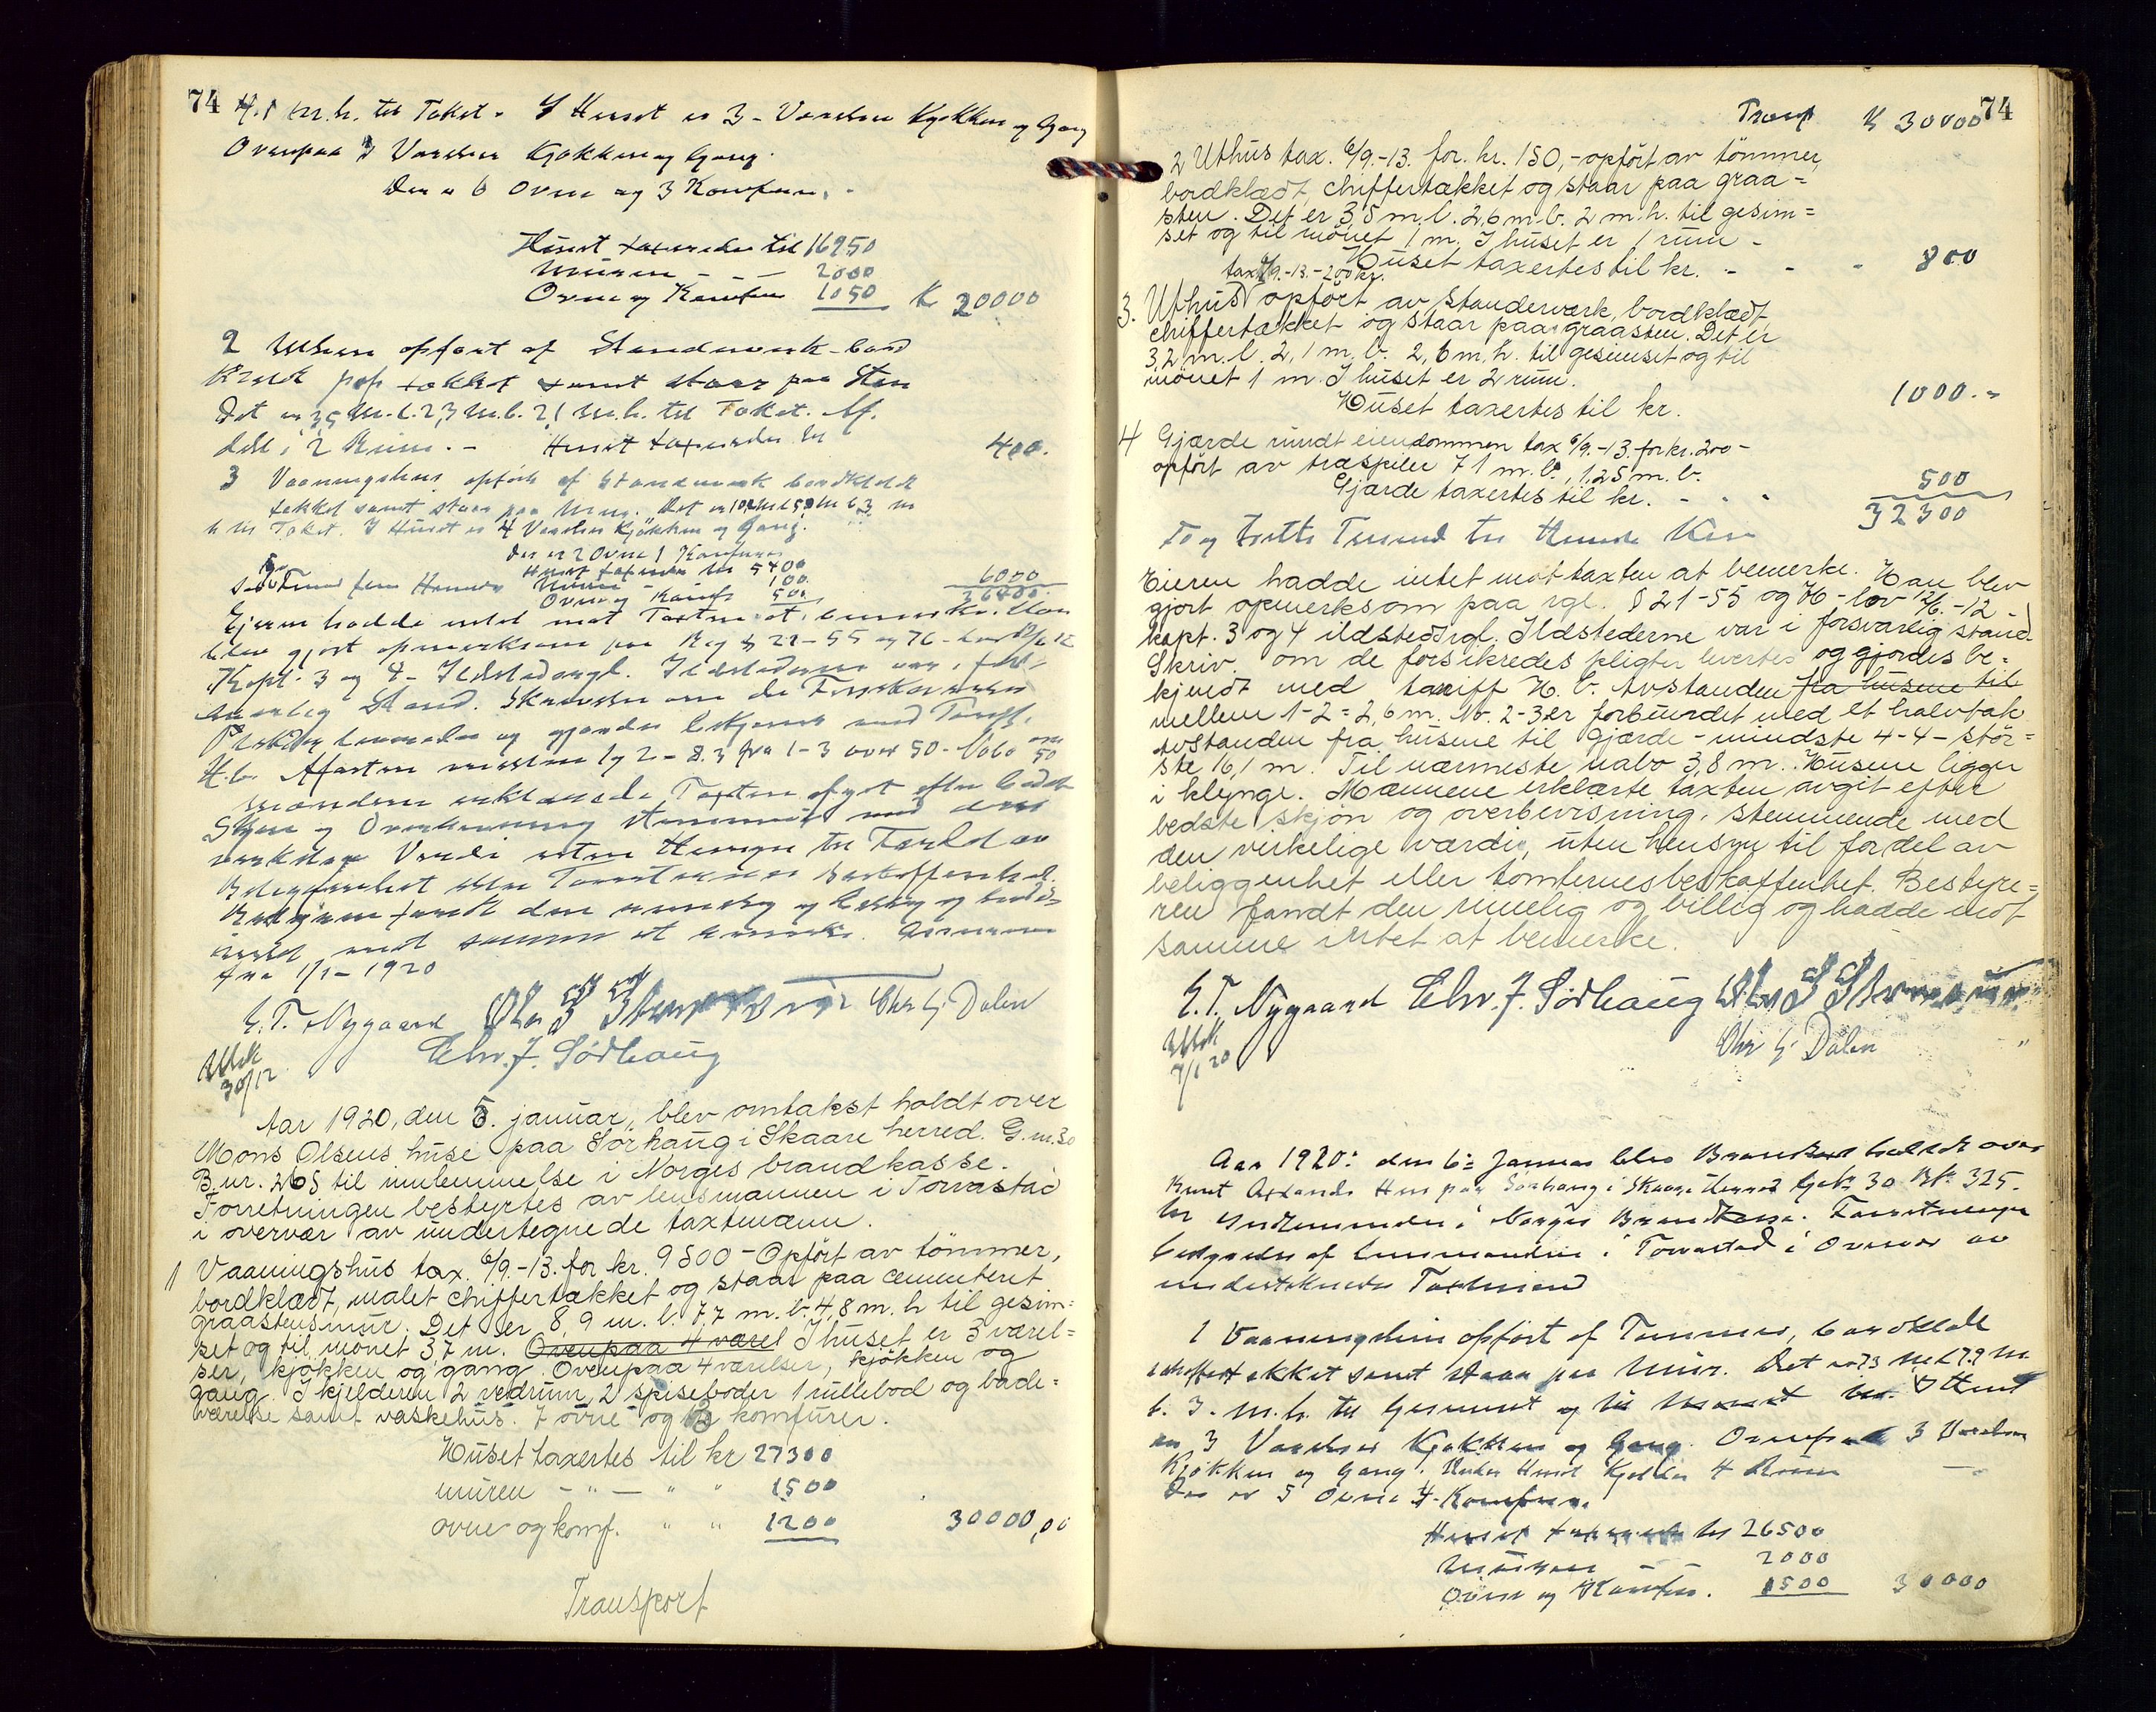 74
4,1 m.h. til Taket. I Huset er 3 - Værelser Kjøkken og Gang
Ovenpaa 3 Værelser Kjøkken og Gang.
Der er 6 Ovne og 3 Komfurer.
Huset taxeredes til 16950
Muren - - - 2000
Ovne og Komfur 1050 K 20000
2 Uthuse opført af Standerverk - bord
klædt pap tækket samt staar paa Sten
Det er 3,5 m.l. 2,3 m.b. 2,1 m.h. til Taket. Af
delt i 2 Rum. - Huset taxeredes til 400.
3 Vaaningshus opført af Standerverk bordklædt
tækket samt staar paa Mur. Det er m
h til Taket. I Huset er 4 Værelser Kjøkken og Gang.
Der er 2 Ovne 1 Komfur
Huset taxeredes til 5400
Muren 100
Ovne og Komf 500 6000
26400
Ejeren hadde intet mod Taxten at bemerke. Han
blev gjort opmerksom paa Reg § 21-55 og 76 - Lov 12/6 12
Kapt. 3 og 4 - Ildstedsregl. Ildstederne var i for-
svarlig Stand. Skrivelse om de Forsikredes
Pligter leveredes og gjordes bekjendt med Tarif,
H.b. Afstanden mellem 1 og 2 - 8.3 fra 1-3 over 50 - Nabo over 50
Mændene erklærede Taxten afgit efter bedste
Skjøn og Overbevisning stemmende med den
virkelige Verdi uten Hensyn til Fordel av
Beliggenhet eller Tomternes Beskaffenhed.
Bestyreren fandt den rimelig og billig og hadde
intet mod samme at bemerke.
fra 1/1 - 1920
E. T. Nygaard Chr G Dalen
Elnv. J. Sørhaug
Utsk
30/12
Aar 1920, den 5. januar, blev omtakst holdt over
Mons Olsens huse paa Sørhaug i Skaare herred. G.nr. 30
B.nr. 265 til innlemmelse i Norges brandkasse.
Forretningen bestyrtes av lensmannen i Torvastad
i overvær av undertegnede taxtmænn.
1 Vaaningshus tax. 6/9.-13. for kr. 9500 - Opført av tømmer,
bordklædt, malet chiffertækket og staar paa cementeret
graastensmur. Det er 8,9 m. l. 7,7 m. b. 4,8 m. h til gesim=
set og til mønet 3,7 m. Ovenpaa 4 værel I huset er 3 værel=
ser, kjøkken og gang. Ovenpaa 4 værelser, kjøkken og
gang. I kjelderen 2 vedrum, 2 spiseboder 1 rullebod og bade=
værelse samt vaskehus. 7 ovne og 3 komfurer.
Huset taxertes til kr 27300
muren - " - " " 1500
ovne og komf. " " 1200 30000,00
Transport
74
Transp K 30000
2 Uthus tax. 6/9.-13. for. kr. 150,- opført av tømmer,
bordklædt, chiffertækket og staar paa graa=
sten. Det er 3,5 m. l. 2,6 m. b. 2 m. h. til gesim=
set og til mønet 1 m. I huset er 1 rum -
Huset taxertes til kr. - - - 800
tax 6/9.-13.-200 kr.
3. Uthus opført av standerværk, bordklædt,
chiffertækket og staar paa graasten. Det er
3,2 m. l. 2,1 m. b. 2,6 m. h. til gesimset og til
mønet 1 m. I huset er 2 rum.
Huset taxertes til kr. 1000.-
4 Gjærde rundt eiendommen tax 6/9.-13. for kr. 200-
opført av træspiler 71 m. l., 1,25 m. b.
Gjærde taxertes til kr. - - - 500
32300
To og tretti Tusend tre Hundre Kr
Eieren hadde intet mot taxten at bemerke. Han blev
gjort opmerksom paa rgl. § 21-55 og 76 - lov 12/6.-12 -
kapt. 3 og 4 ildstedsrgl. Ildstederne var i forsvarlig stand.
Skriv. om de forsikredes pligter levertes og gjordes be=
kjendt med tariff H. b. Avstanden fra husene til
mellem 1-2 = 2,6 m. Nr. 2-3 er forbundet med et halvtak
avstanden fra husene til gjærde - mindste 4-4 - stør=
ste 16,1 m. Til nærmeste nabo 3,8 m. Husene ligger
i klynge. Mænnene erklærte taxten avgit efter
bedste skjøn og overbevisning, stemmende med
den virkelige værdi, uten hensyn til fordel av
beliggenhet eller tomternes beskaffenhet. Bestyre=
ren fandt den rimelig og billig og hadde mot
samme intet at bemerke.
E. T. Nygaard Elnv. J. Sørhaug
Chr G Dalen
Utsk
7/1 20
Aar 1920: den 6= Januar blev Brandtaxt holdt over
Knut Hus paa Sørhaug i Skaare Herred G.№ 30 B№ 325.
til Indlemmelse i Norges Brandkasse. Forretningen
bestyredes af Lensmanden i Torvastad i Overvær av
undertegnede Taxtmænd
1 Vaaningshus opført af Tømmer, bordklædt
chiffertækket samt staar paa Mur. Det er 7,3 m l 7,9 m
b. 3. m. h. til Gesimset og til Mønet I Huset
er 3 Værelser Kjøkken og Gang. Ovenpaa 3 Værelser
Kjøkken og Gang. Under Huset Kjelder 4 Rum
Der er 5 Ovne 4 Komfurer.
Huset taxeredes til 26500
Muren - - 2000
Ovne og Komfur. 1500 30000